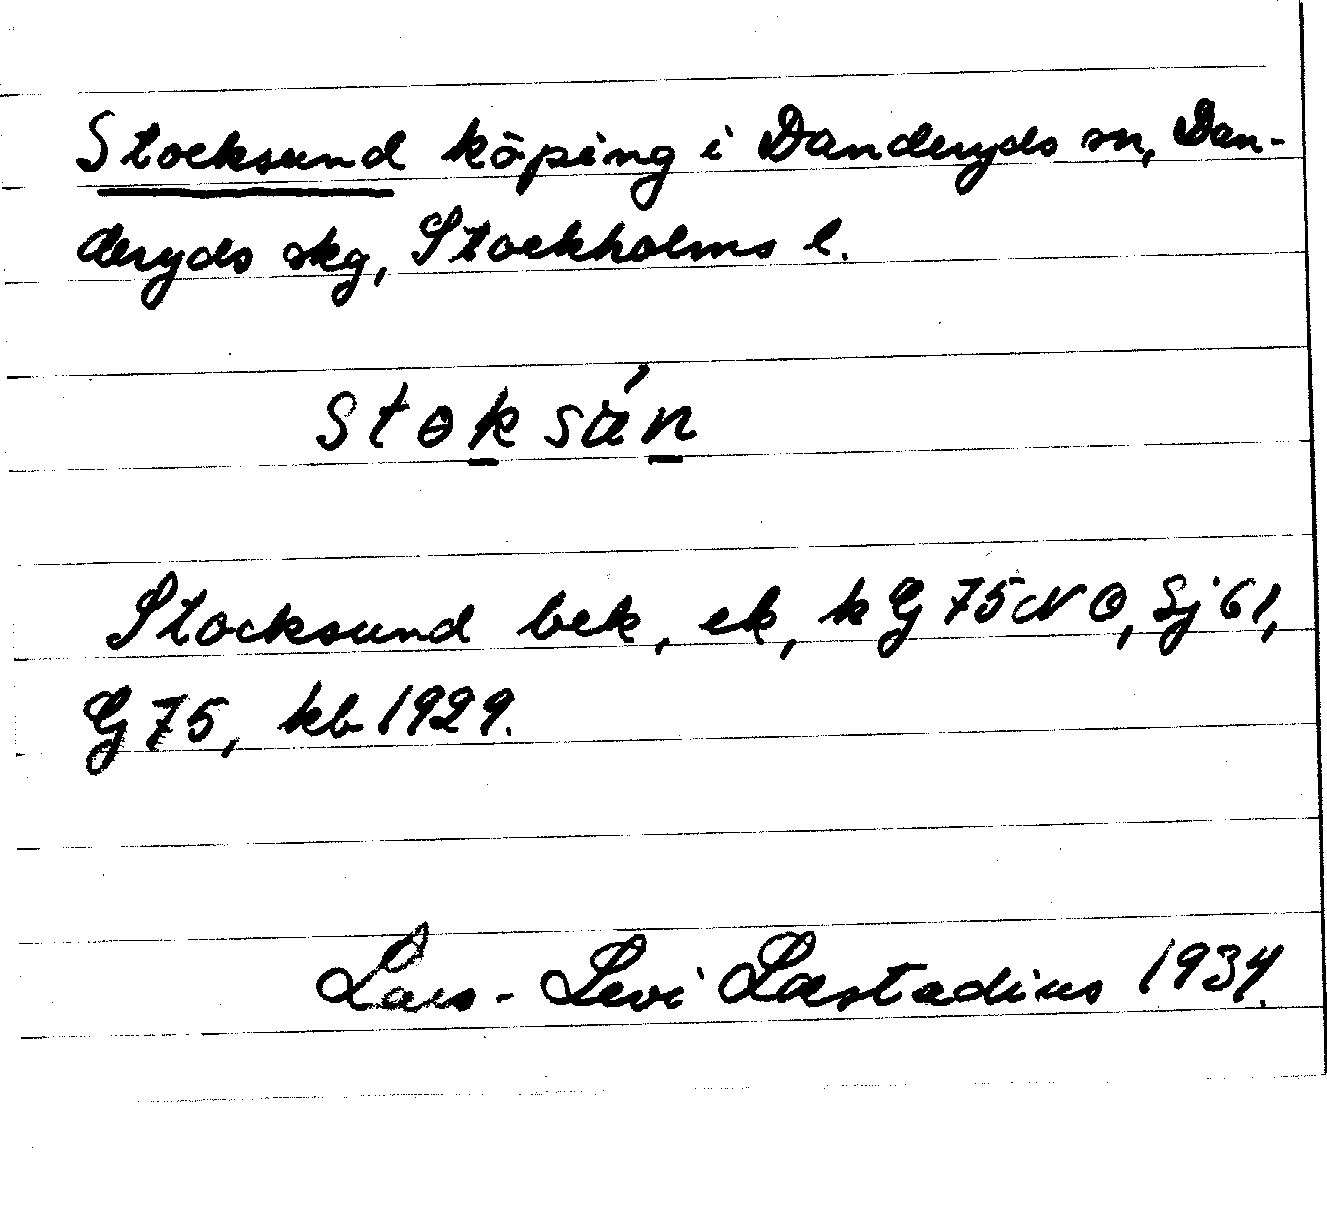 Stocksund köping i Danderyds sn, Dan-
deryds skg, Stockholms l.
Stocksund bek, ek, k G 75 NO, Sj 61,
G 75, kb 1929.
Lars-Levi Læstadius 1934.